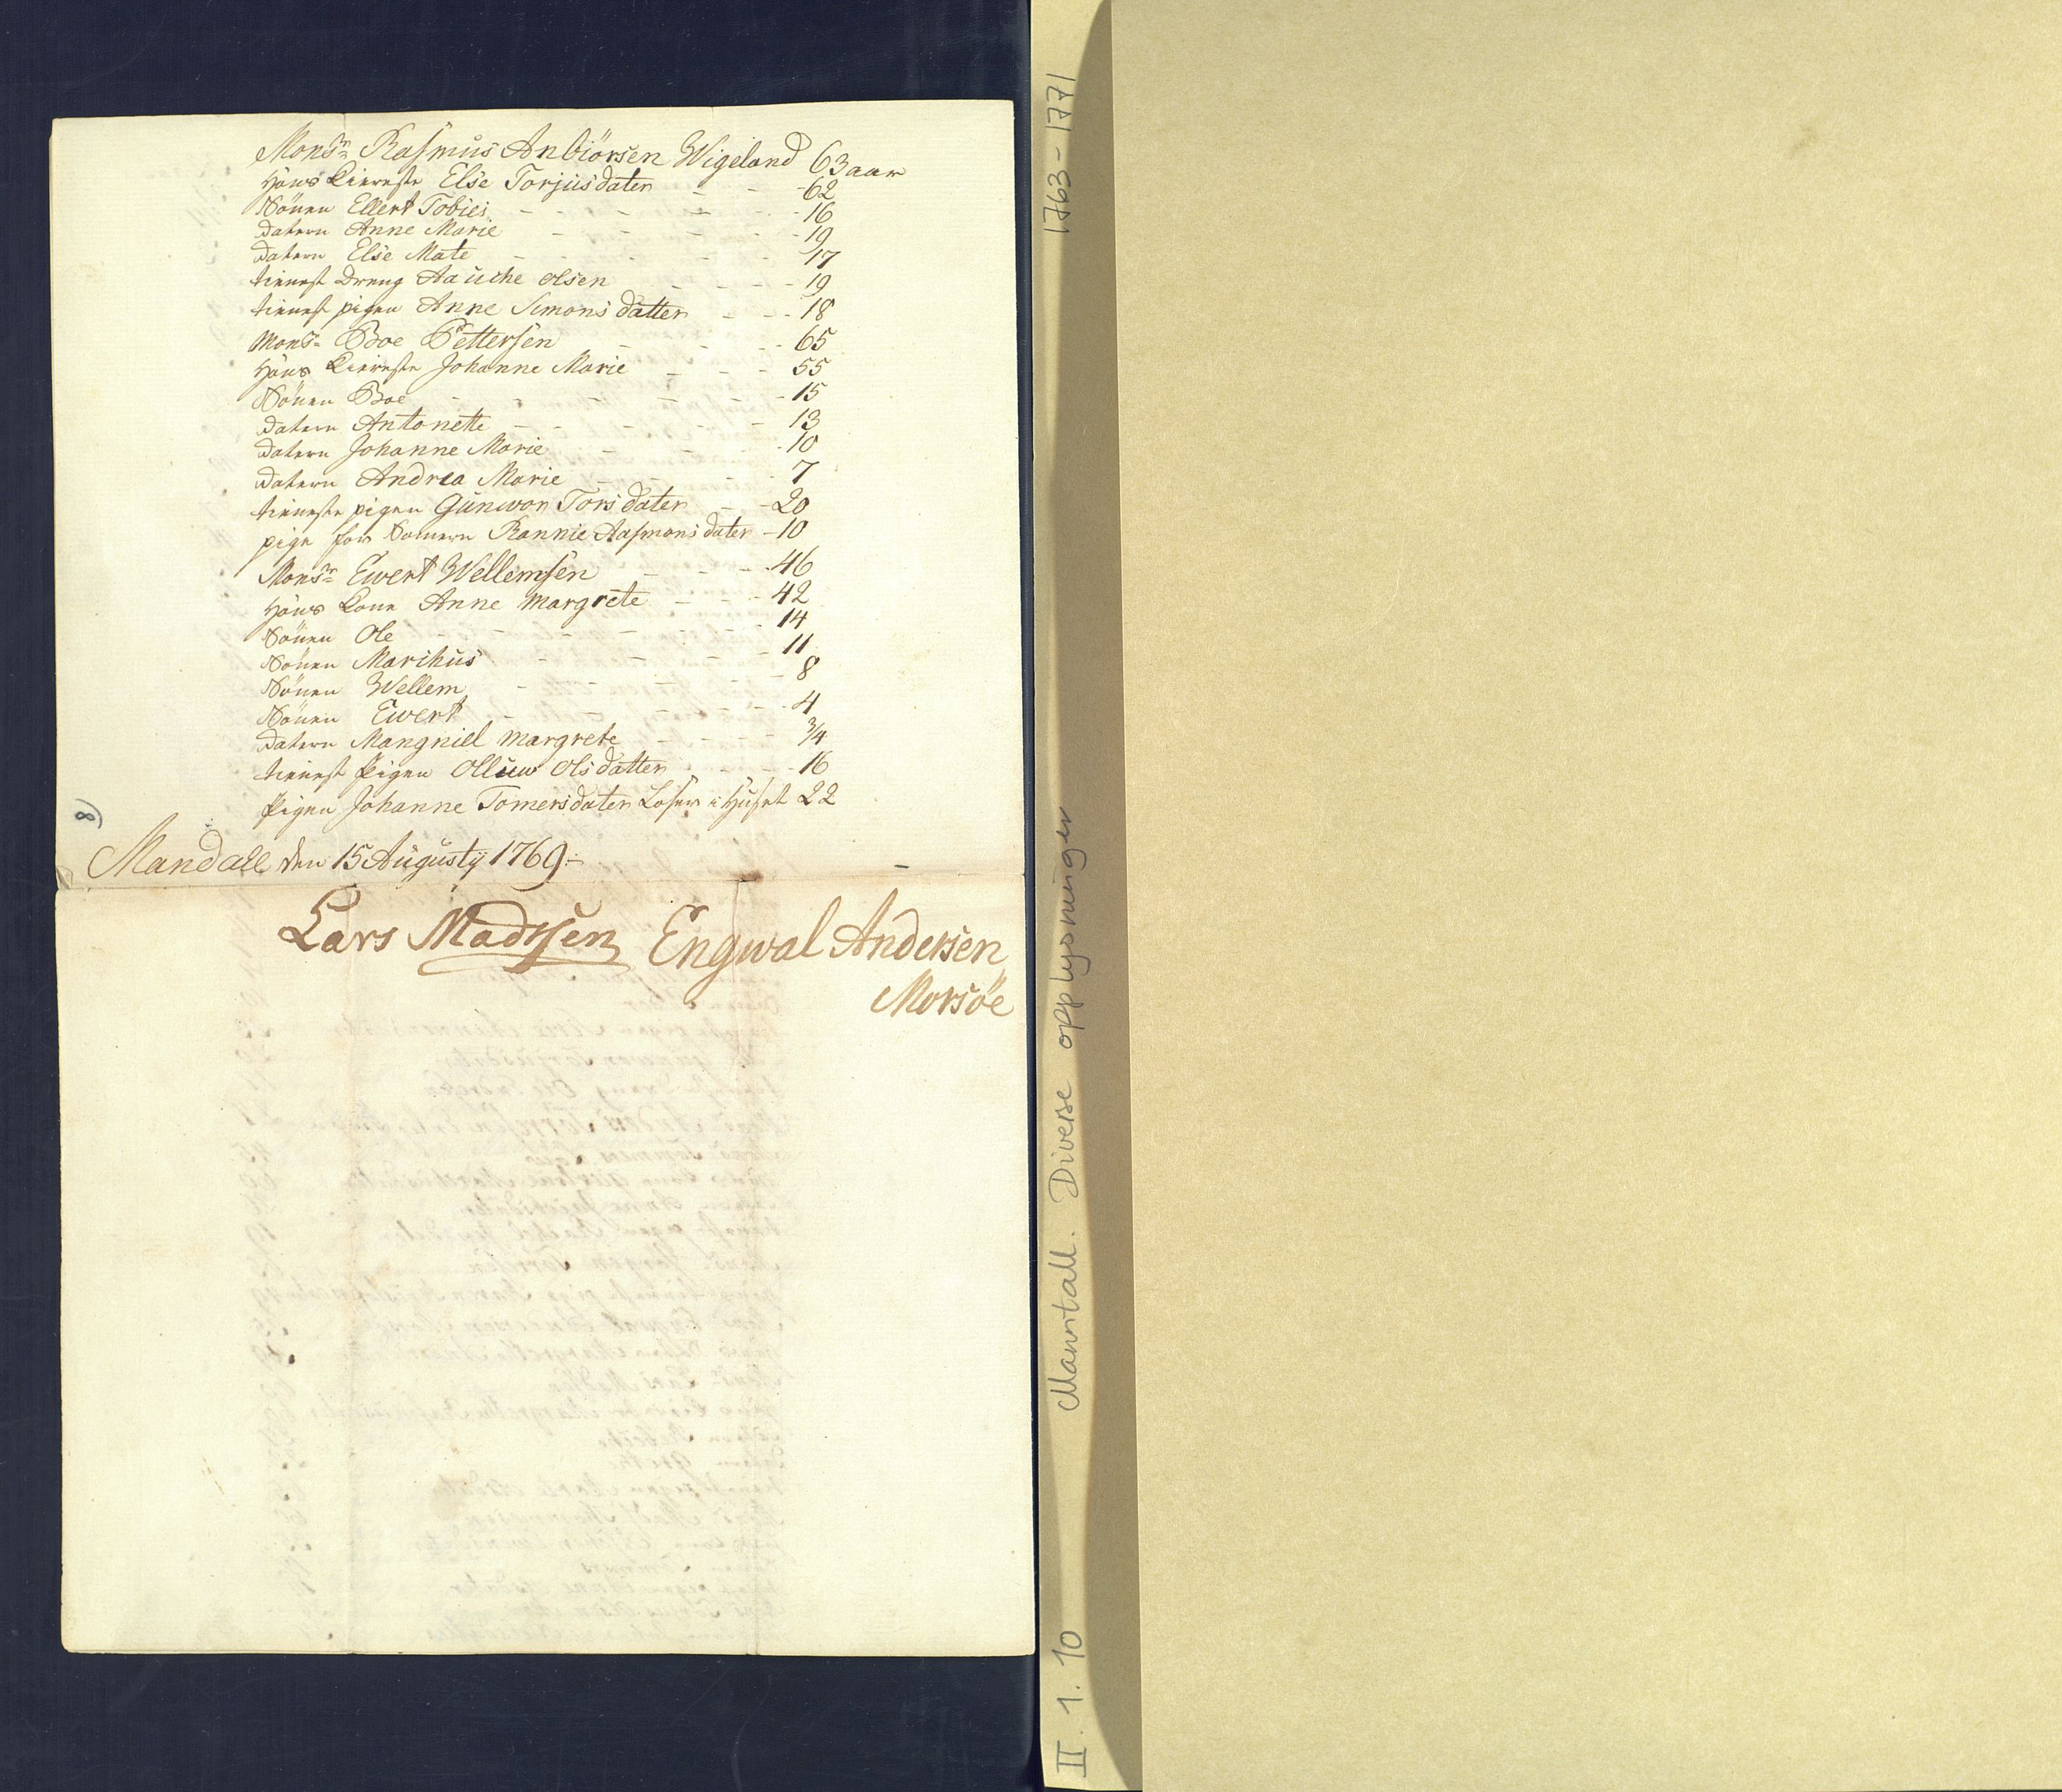 Monsr Rasmus Anbiörsen Wigeland 63 aar
Hans Kiereste Else Torjusdater - - 62
Sönen Ellert Tobies - - - - - 16
datern Anne Marie - - - - - 19
datern Else Mate - - - - - 17
tienest dreng Aauche Olsen - - - - 19
tienest pigen Anne Simons datter - - - 18
Monsr Boe Pettersen - - - 65
Hans Kiereste Johanne Marie - - - 55
Sönen Boe - - - - - - 15
datern Antonette - - - - - 13
datern Johanne Marie - - - 10
datern Andrea Marie - - - - 7
tieneste pigen Gunwor Tors dater - - 20
pige for Kosten Rannie Aasmons dater - 10
Monsr Ewert Wellemsen - - - 46
Hans Kone Anne Margrete - - - 42
Sönen Ole - - - - - - 14
Sönen Marihus - - - - - 11
Sönen Wellem - - - - - 8
Sönen Ewert - - - - - 4
datern Mangniel Margrete - - - - 3/4
tienest Pigen Olluw Ols datter - - - 16
Pigen Johanne Tomersdater Loser i Huset 22
8)
Mandall den 15 Augustij 1769:-
Lars Madssen Engwal Andersen
Morsöe
II. 1. 10 Manntall. Diverse opplysninger 1763-1771